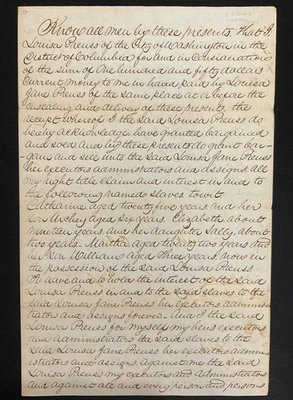 Know all men by these presents That I
Louisa Preuss of the City of Washington in the
District of Columbia for and in Consideration
of the Sum of One hundred and fifty dollars
Current money to me in hand paid by Louisa
Jane Preuss of the same place at or before the
ensealing and delivery of these presents, the
receipt whereof I the said Louisa Preuss do
hereby acknowledge have granted bargained
and sold and by these presents do grant bar-
gain and sell unto the said Louisa Jane Preuss
her executors administrators and assigns all
my right title claim and interest in and to
the following named slaves to wit:
Catharine aged twenty five years and her
Son Archey aged six years. Elizabeth about
nineteen years and her daughter Sally, about
two years. Martha aged twenty two years and
her Son William aged three years now in
the possession of the said Louisa Preuss
To have and to hold the interest of the said
Louisa Preuss in and to the said slaves to the
said Louisa Jane Preuss her executors adminis
trators and assigns forever. And I the said
Louisa Preuss for myself my heirs executors
and administrators the said slaves to the
said Louisa Jane Preuss her executors adminis
trators and assigns against me the said
Louisa Preuss my executors and administrators
and against all and every person and persons